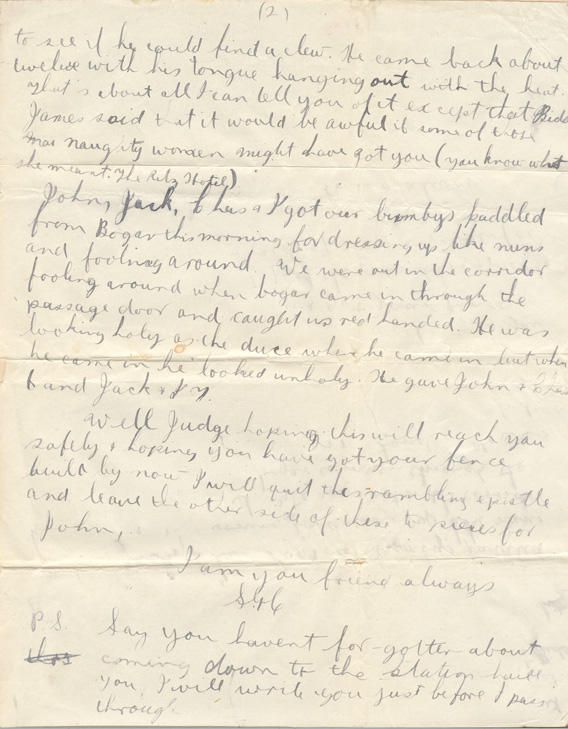 (2)
to see if he could find a clew. He came back about
twelve with his tongue hanging out with the heat.
That's about all I can tell you of it except that
James said that it would be awful if some of those
naughty women might have got you (you know what
she meant. The Ritz Hotel)
John, Jack, & I got our bumbys paddled
from Bogar this morning for dressing up like nuns
and fooling around. We were out in the corridor
fooling around when bogar came in through the
passage door and caught us red handed. He was
looking holy as the duce when he came in but when
he came in he looked unholy. He gave John &
6 and Jack & I 7.
Well Judge hoping this will reach you
safely & hoping you have got your fence
built by now I will quit this rambling epistle
and leave the other side of these to pieces for
John,.
I am you friend always
P.S. Say you havent for-gotten about
coming down to the station
you, I will write you just before I pass
through.